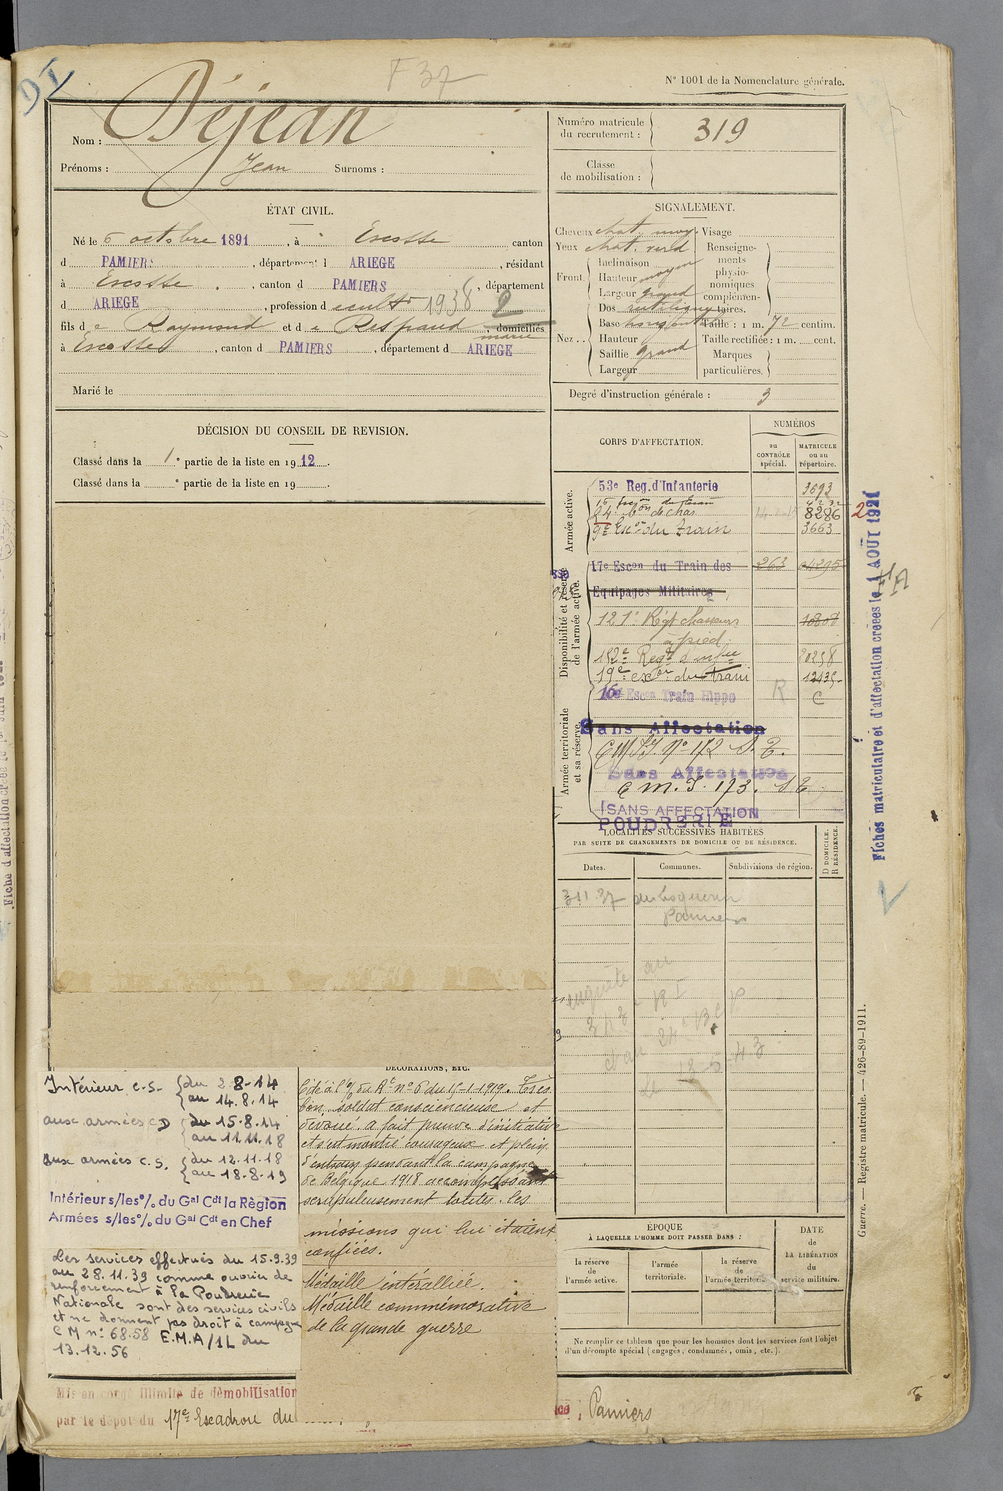 DI
F 37
N° 1001 de la Nomenclature générale.
Nom : Déjean
Prénoms : Jean Surnoms :
Numéro matricule du recrutement : 319
Classe de mobilisation :
ÉTAT CIVIL.
Né le 6 octobre 1891, à Escosse canton
d PAMIERS, département d ARIEGE, résidant
à Escosse, canton d PAMIERS, département
d ARIEGE, profession d cult 1938 2
fils de Raymond et de Respaud, domiciliés
marié
à Escosse, canton d PAMIERS, département d ARIEGE
Marié le
SIGNALEMENT.
Cheveux chat. moy.
Yeux chat. verd
Front. Inclinaison moyen
Hauteur
Largeur grand
Nez. Dos rectiligne
Base
Hauteur
Saillie grand
Largeur
Visage
Renseignements physionomiques complémentaires.
Taille : 1 m. 72 centim.
Taille rectifiée : 1 m. cent.
Marques particulières.
Degré d'instruction générale : 3
DÉCISION DU CONSEIL DE REVISION.
Classé dans la 1e partie de la liste en 1912.
Classé dans la e partie de la liste en 19 .
CORPS D'AFFECTATION.
NUMÉROS
au CONTRÔLE spécial.
MATRICULE ou au répertoire.
Armée active.
53e Reg. d'Infanterie 3693
24e de chas. 8286 2
9e Escon du train 3663
Disponibilité et réserve de l'armée active.
17e Escon du Train des 263 04295
Equipages Militaires
121e Régt Chasseurs
à pied
182e Regt d'infie 20258
19e escon du train
16e Escon Train Hippo R C
Armée territoriale et sa réserve.
Sans Affectation
C M I N° 172 S. E.
Sans Affectation
C M. I. 173. S E
SANS AFFECTATION
POUDRERIE
LOCALITÉS SUCCESSIVES HABITÉES
PAR SUITE DE CHANGEMENTS DE DOMICILE OU DE RÉSIDENCE.
Dates. Communes. Subdivisions de région. D DOMICILE. R RÉSIDENCE.
Pamiers
enquête au
et au 24e BCP
le 18-5-43
Fiches matriculaire et d'affectation créées le 1 AOUT 1921
Guerre. — Registre matricule. — 426-89-1911.
Intérieur C.S. du 2-8-14
au 14.8.14
aux armées CD du 15-8.14
au 11.11.18
aux armées C.S. du 12.11.18
au 18-8-19
Intérieur s/les o/. du Gal Cdt la Région
Armées s/les o/. du Gal Cdt en Chef
Les services effectués du 15.9.39
au 28.11.39 comme ouvrier de
renforcement à la Poudrerie
Nationale sont des services civils
et ne donnent pas droit à campagne
C M n° 68.58 E.M.A/1L du
13.12.56
DÉCORATIONS, ETC.
Cité à l'o/ du Rt n° 6 du 15-1-1919. Très
bon soldat consciencieux et
dévoué. A fait preuve d'initiative
et s'est montré courageux et plein
d'entrain pendant la campagne
de Belgique 1918 accomplissant
scrupuleusement toutes les
missions qui lui étaient
confiées.
Médaille interalliée.
Médaille commémorative
de la grande guerre
ÉPOQUE
À LAQUELLE L'HOMME DOIT PASSER DANS :
la réserve de l'armée active.
l'armée territoriale.
la réserve de l'armée territoriale
DATE de LA LIBÉRATION du service militaire.
Ne remplir ce tableau que pour les hommes dont les services font l'objet
d'un décompte spécial (engagés, condamnés, omis, etc.).
Mis en congé illimité de démobilisation
par le dépot du 17e Escadron du
Pamiers